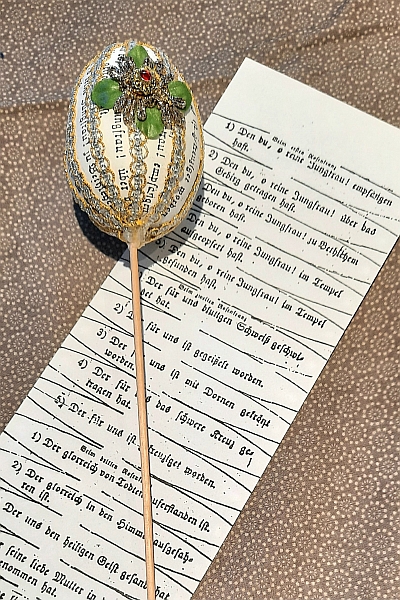 Jungfrau!
über
empfangen
Beim ersten Rosenkranz.
1) Den du, o reine Jungfrau! empfangen
hast.
2) Den du, o reine Jungfrau! über das
Gebirg getragen hast.
Den du, o reine Jungfrau! zu Bethlehem
geboren hast.
Den du, o reine Jungfrau! im Tempel
aufgeopfert hast.
Den du, o reine Jungfrau! im Tempel
gefunden hast.
Der für uns blutigen Schweiß geschwi=
tzet hat.
2) Der für uns ist gegeißelt worden.
3) Der für uns ist mit Dornen gekrönt
worden.
4) Der für uns das schwere Kreuz ge=
tragen hat.
5) Der für uns ist gekreuziget worden.
1) Der glorreich von Todten auferstanden ist.
2) Der glorreich in den Himmel aufgefah=
ren ist.
Der uns den heiligen Geist gesandt hat.
seine liebe Mutter in
genommen hat.